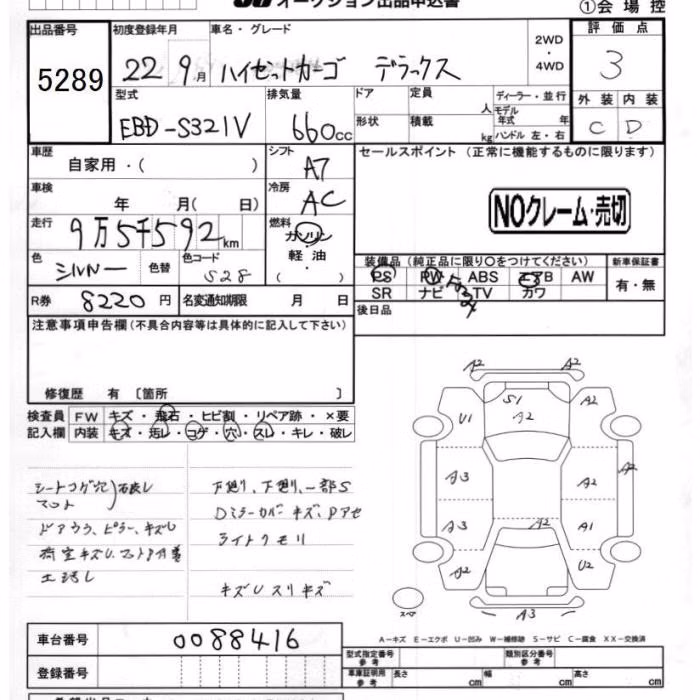 オークション出品申込書
①会場控
出品番号 初度登録年月 車名・グレード 評価点
5289 22 9月 ハイゼットカーゴ デラックス 2WD・4WD 3
型式 排気量 ドア 定員 人 ディーラー・並行 外装 内装
EBD-S321V 660cc 形状 積載 kg モデル年式 年 ハンドル 左・右 C D
車歴 シフト セールスポイント (正常に機能するものに限ります)
自家用・( ) A7
車検 冷房
年 月( 日) AC NOクレーム・売切
走行 燃料
9万5千592km ガソリン・軽油・( )
色 色替 色コード 装備品(純正品に限り○をつけてください) 新車保証書
シルバー S28 PS PW ABS エアB AW 有・無
SR ナビ TV カワ
R券 8220円 名変通知期限 月 日 後日品
注意事項申告欄(不具合内容等は具体的に記入して下さい)
修復歴 有 〔箇所 〕
検査員 FW キズ・飛石・ヒビ割・リペア跡・×要
記入欄 内装 キズ・汚レ・コゲ・穴・スレ・キレ・破レ
A2 A2
S1 A2 A2
U1
A3 A2 A2
A3 A2 A1
A2 U2
A3
シートコゲ穴
マット
ドアウラ、ピラー、キズU
下廻り、一部S
Dミラーカバーキズ、Pアセ
ライトクモリ
キズUスリキズ
A-キズ E-エクボ U-凹み W-補修跡 S-サビ C-腐食 XX-交換済
車台番号 0088416
型式指定番号 参考 類別区分番号 参考
登録番号 車庫証明用 参考 長さ cm 幅 cm 高さ cm